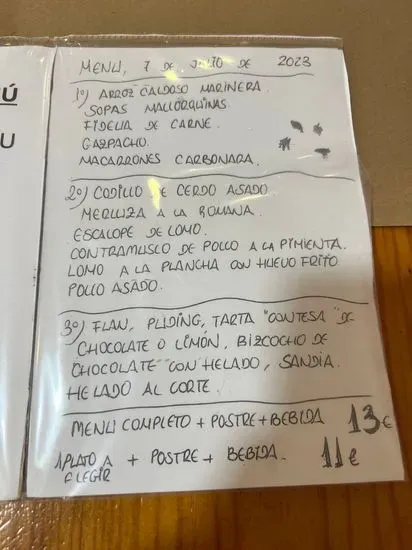 Ú
U
MENU, 7 DE JULIO DE 2023
1º) ARROZ CALDOSO MARINERA.
SOPAS MALLORQUINAS.
FIDEUA DE CARNE.
GAZPACHO.
MACARRONES CARBONARA.
2º) CODILLO DE CERDO ASADO
MERLUZA A LA ROMANA.
ESCALOPE DE LOMO.
CONTRAMUSLO DE POLLO A LA PIMIENTA.
LOMO A LA PLANCHA CON HUEVO FRITO
POLLO ASADO.
3º) FLAN, PUDING, TARTA "CONTESA" DE
CHOCOLATE O LIMÓN, BIZCOCHO DE
CHOCOLATE CON HELADO, SANDIA.
HELADO AL CORTE.
MENU COMPLETO + POSTRE + BEBIDA 13€
1 PLATO A ELEGIR + POSTRE + BEBIDA. 11€